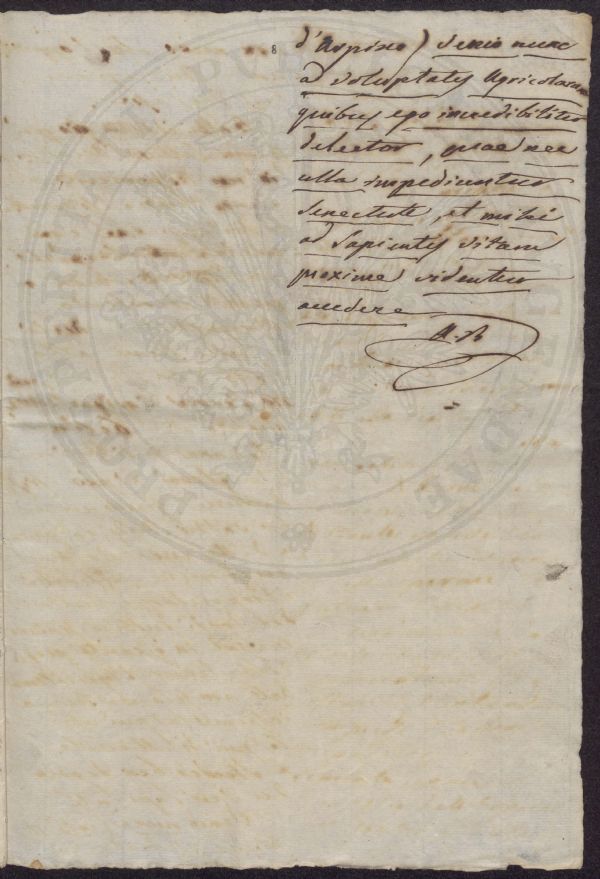 8
d'Arpino) Venio nunc
ad voluptates Agricolarum
quibus ego incredibiliter
delector, quae nec
ulla impediuntur
senectute, et mihi
ad Sapientis vitam
proxime videntur
accedere
PROSPERITATI PUBLICAE AUGENDAE